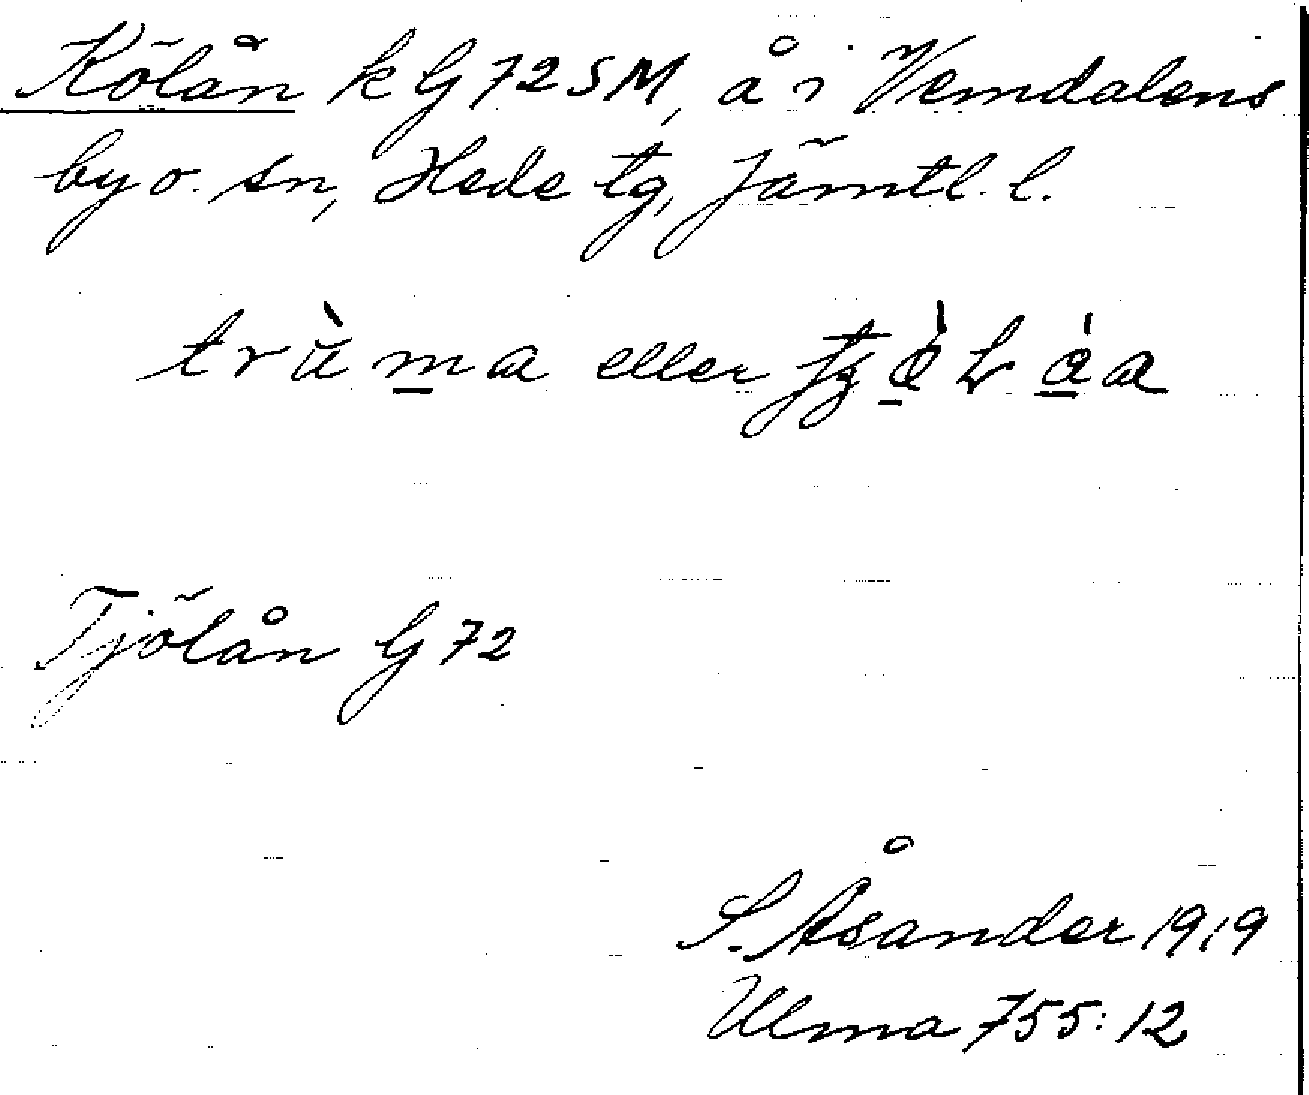 Kölån k G 72 SM, å i Vemdalens
by o. sn, Hede tg, Jämtl. l.
eller
Tjölån G 72
S. Åsander 1919
Ulma 755:12